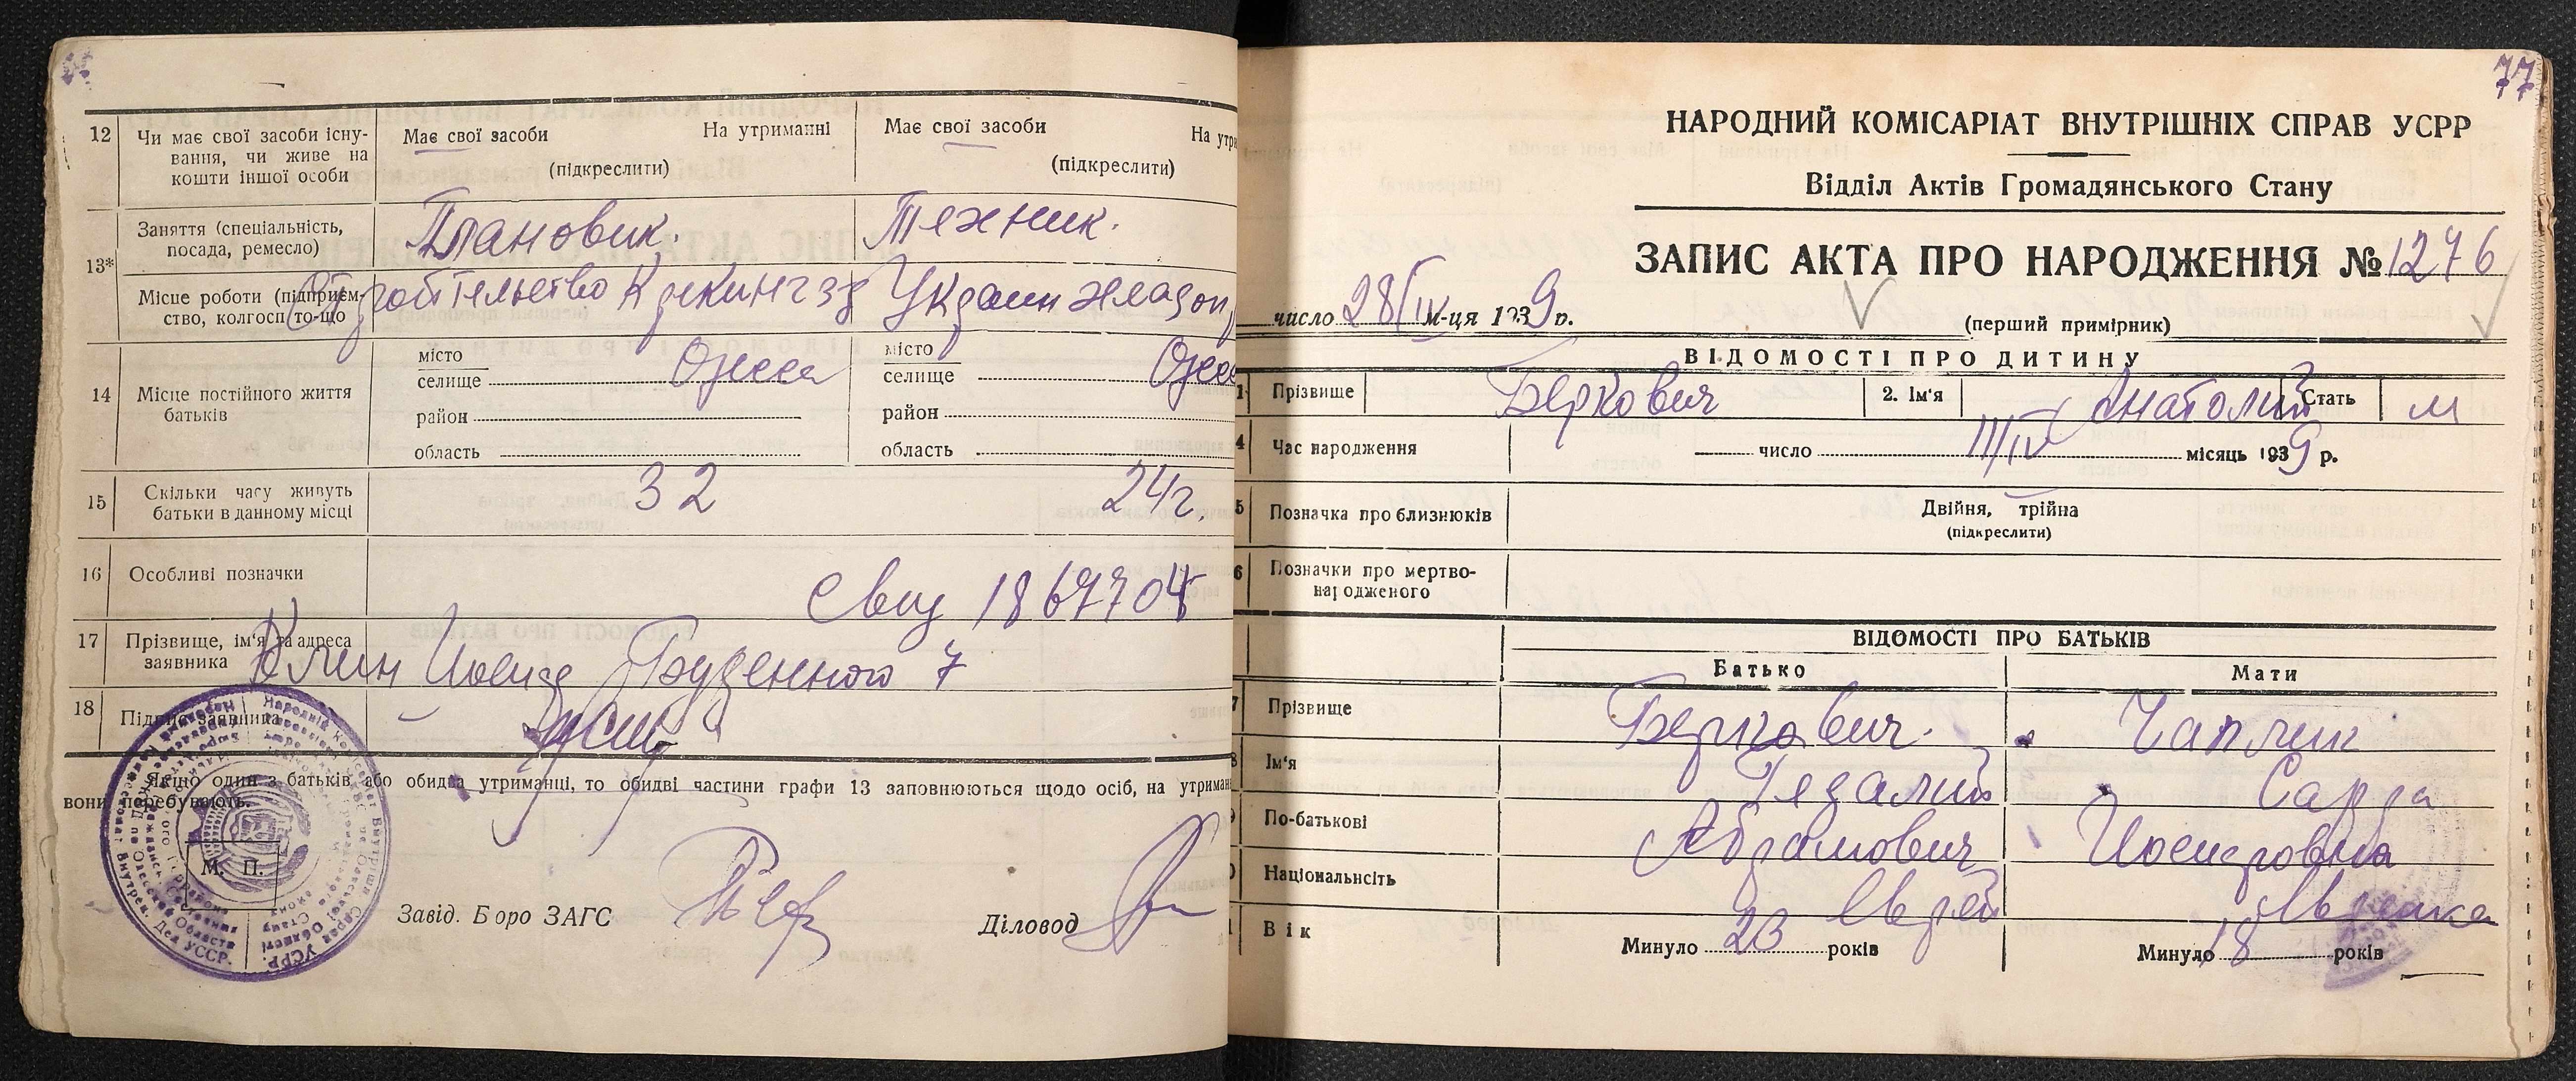 12 Чи має свої засоби існування, чи живе на кошти іншої особи
Має свої засоби На утриманні
(підкреслити)
Має свої засоби На утри
(підкреслити)
13* Заняття (спеціальність, посада, ремесло)
Плановик. Техник.
Місце роботи (підприємство, колгосп то-що
Строительство Крекингз
14 Місце постійного життя батьків
місто
селище Одесса
район
область
місто
селище Одес
район
область
15 Скільки часу живуть батьки в данному місці
32 24 г.
16 Особливі позначки
Свид 1867704
17 Прізвище, ім'я та адреса заявника
Клин Иосиф Буденного 7
18 Підпис заявника
Якщо один з батьків або обидва утриманні, то обидві частини графи 13 заповнюються щодо осіб, на утриман
вони перебувають.
М. П.
Завід. Бюро ЗАГС Діловод
77
НАРОДНИЙ КОМІСАРІАТ ВНУТРІШНІХ СПРАВ УСРР
Відділ Актів Громадянського Стану
ЗАПИС АКТА ПРО НАРОДЖЕННЯ № 1276
число 28/IV м-ця 1939 р.
(перший примірник)
ВІДОМОСТІ ПРО ДИТИНУ
1 Прізвище Беркович 2. Ім'я Анатолий Стать м
4 Час народження число III/IV місяць 1939 р.
5 Позначка про близнюків Двійня, трійна
(підкреслити)
6 Позначки про мертвонародженого
ВІДОМОСТІ ПРО БАТЬКІВ
Батько Мати
7 Прізвище Беркович. Чаплик
8 Ім'я Гедалий Сарра
9 По-батькові Абрамович Иосифовна
0 Національність Еврей Еврейка
1 Вік Минуло 23 років Минуло 18 років